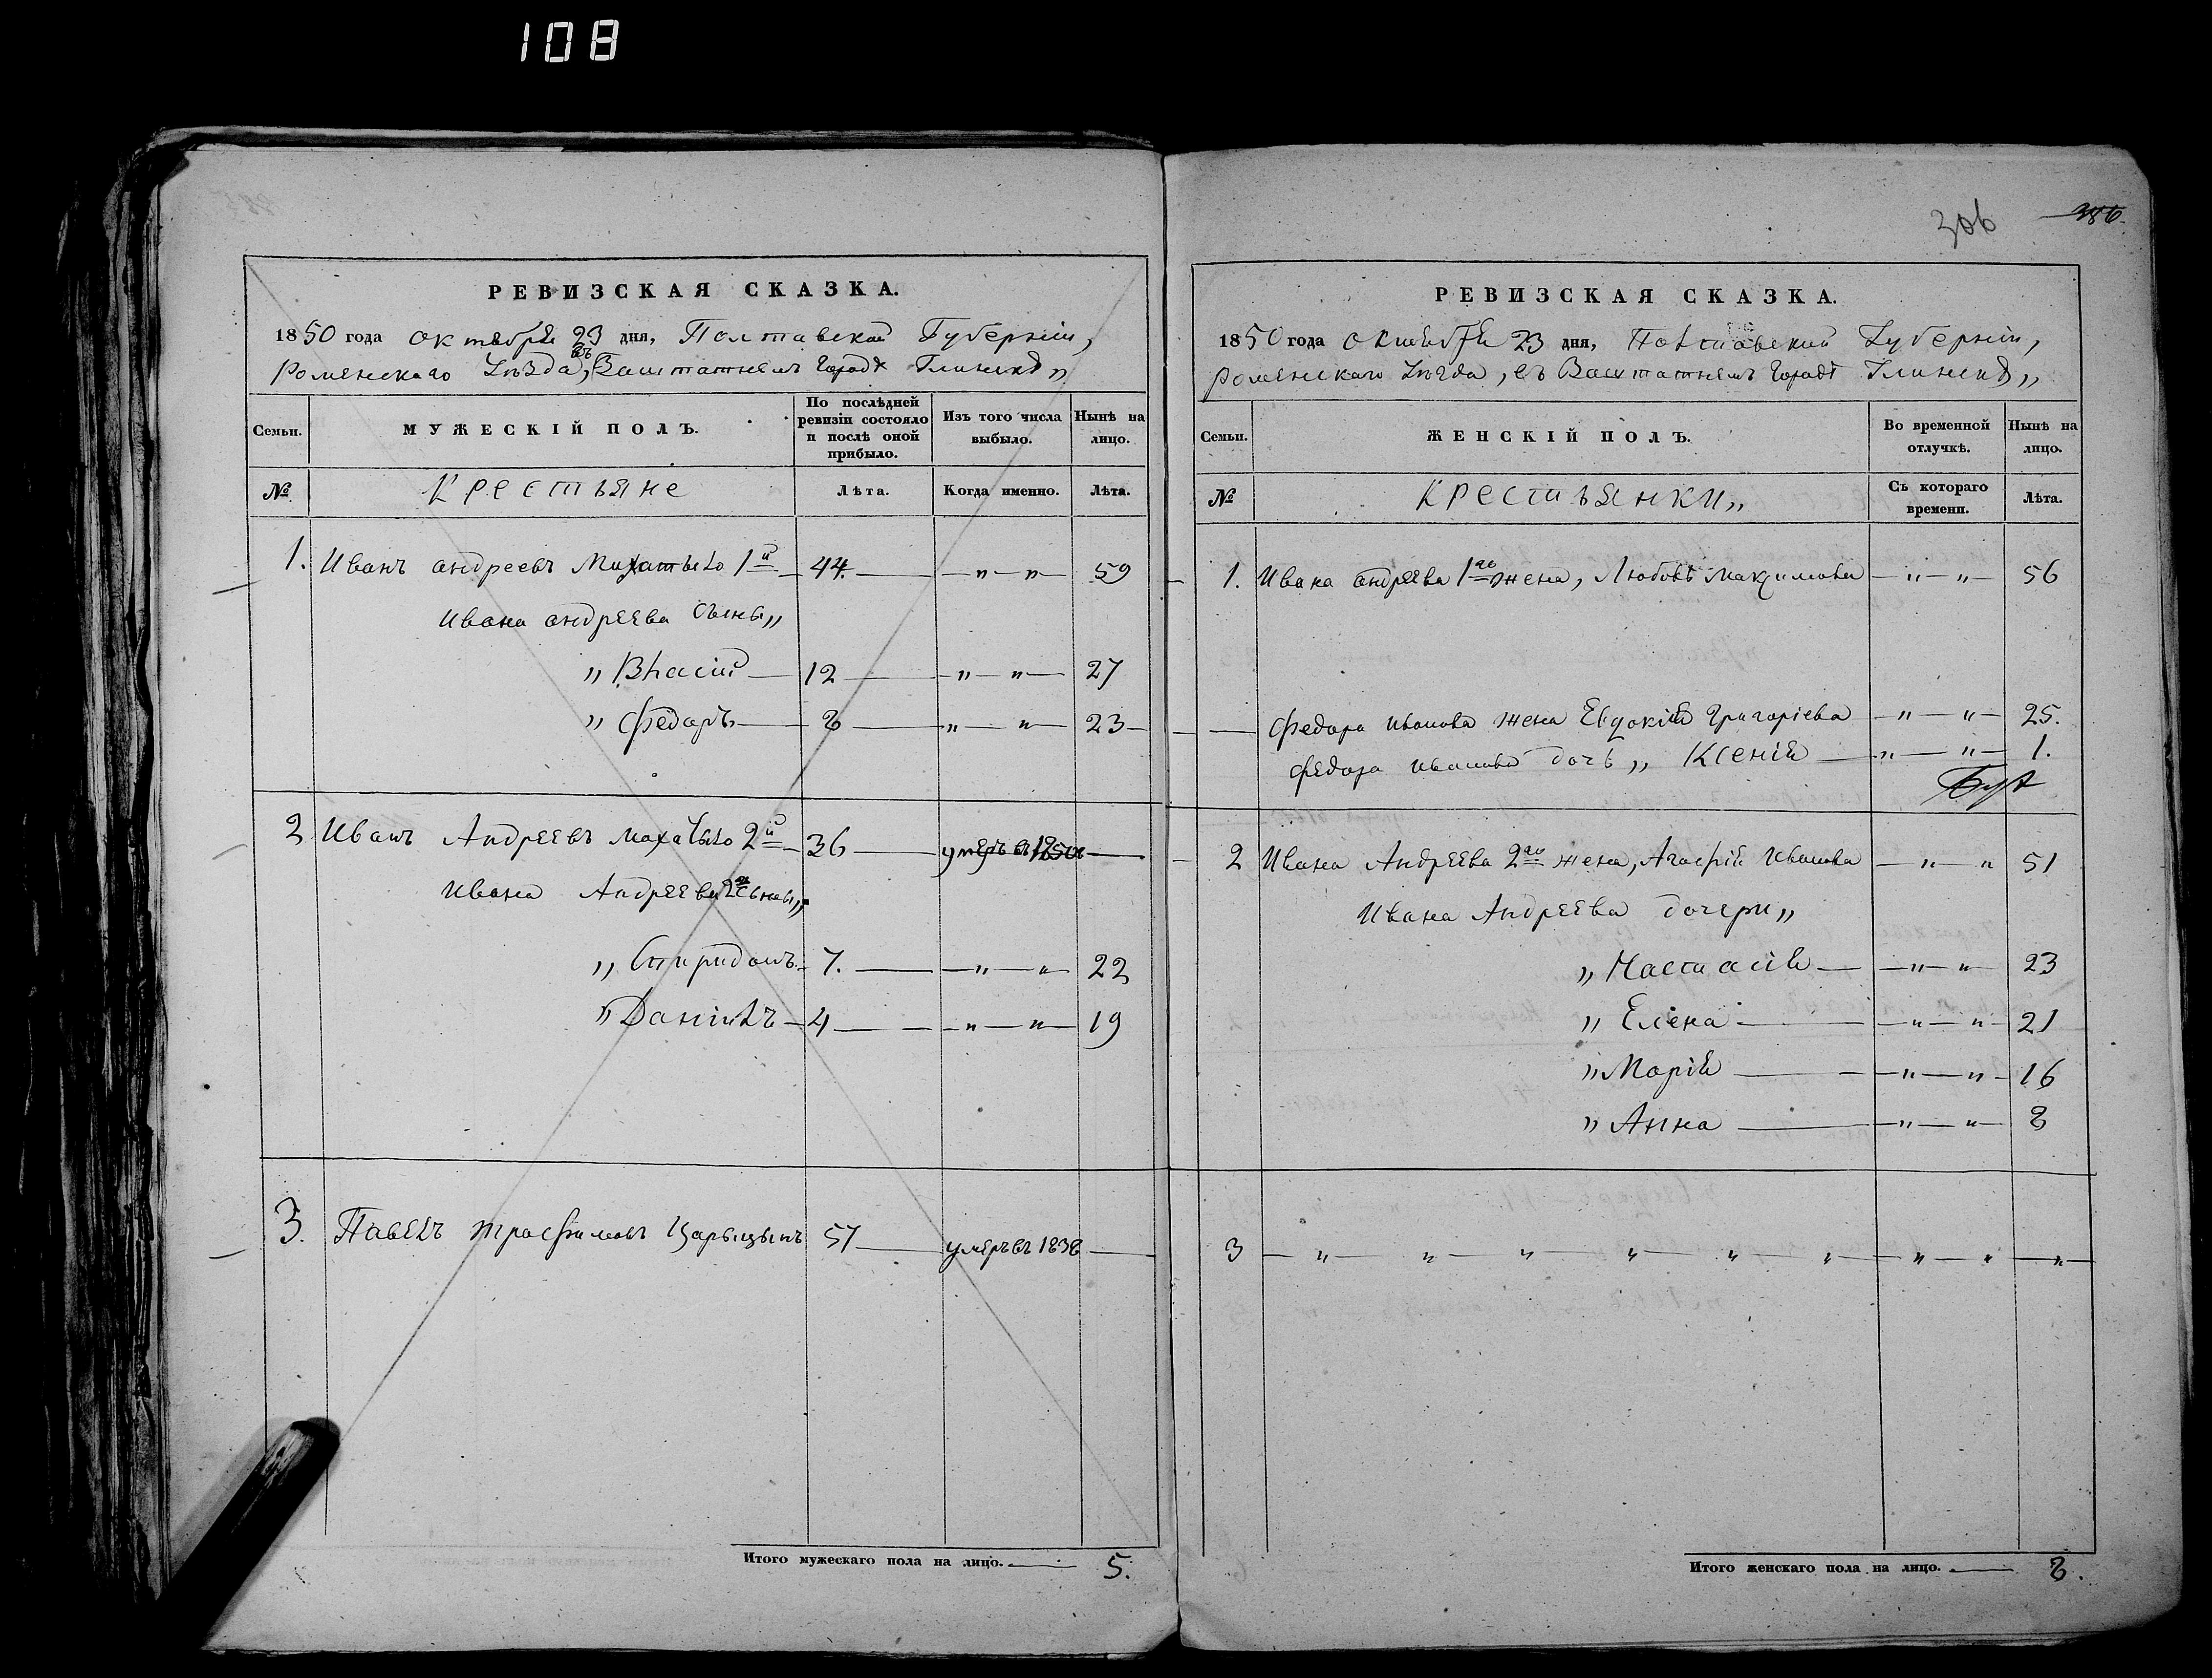 108
РЕВИЗСКАЯ СКАЗКА.
1850 года октября 23 дня, Полтавской Губерніи,
Роменскаго Уѣзда, въ Заштатнемъ Городѣ Глинскѣ„
Семьи.
МУЖЕСКІЙ ПОЛЪ.
По послѣдней ревизіи состояло и послѣ оной прибыло.
Изъ того числа выбыло.
Нынѣ на лицо.
№
Крестьяне
Лѣта.
Когда именно.
Лѣта.
1. Иванъ андреевъ 1й 44. — „ — „ — 59
Ивана андреева сыны„
„ Власій — 12 — „ — „ — 27
„ Федоръ — 8 — „ — „ — 23
2 Иванъ Андреевъ 2й 36 — умеръ въ
Ивана Андреева 2го сыны„
„ Спиридонъ 7. — „ — „ 22
„ Даніилъ 4 — „ — „ 19
3. Павелъ Трофимовъ Царыцынъ 57 — умеръ въ 1838 —
Итого мужескаго пола на лицо. — 5.
306
386.
РЕВИЗСКАЯ СКАЗКА.
1850 года октября 23 дня, Полтавской Губерніи,
Роменскаго Уѣзда, въ Заштатнемъ Городѣ Глинскѣ„
Семьи.
ЖЕНСКІЙ ПОЛЪ.
Во временной отлучкѣ.
Нынѣ на лицо.
№
Крестьянки„
Съ котораго времени.
Лѣта.
1. Ивана андреева 1го жена, Любовь Максимова — „ — „ — 56
Федора Иванова жена Евдокія Григоріева — „ — „ — 25.
Федора Иванова дочь„ Ксенія — „ — „ — 1.
2 Ивана Андреева 2го жена, Агафія Иванова — „ — „ 51
Ивана Андреева дочери„
„ Настасія — „ — „ 23
„ Елена — „ — „ 21
„ Марія — „ — „ — 16
„ Анна — „ — „ — 8
3 — „ — „ — „ — „ — „ — „ — „ — „ — „ —
Итого женскаго пола на лицо. — 8.